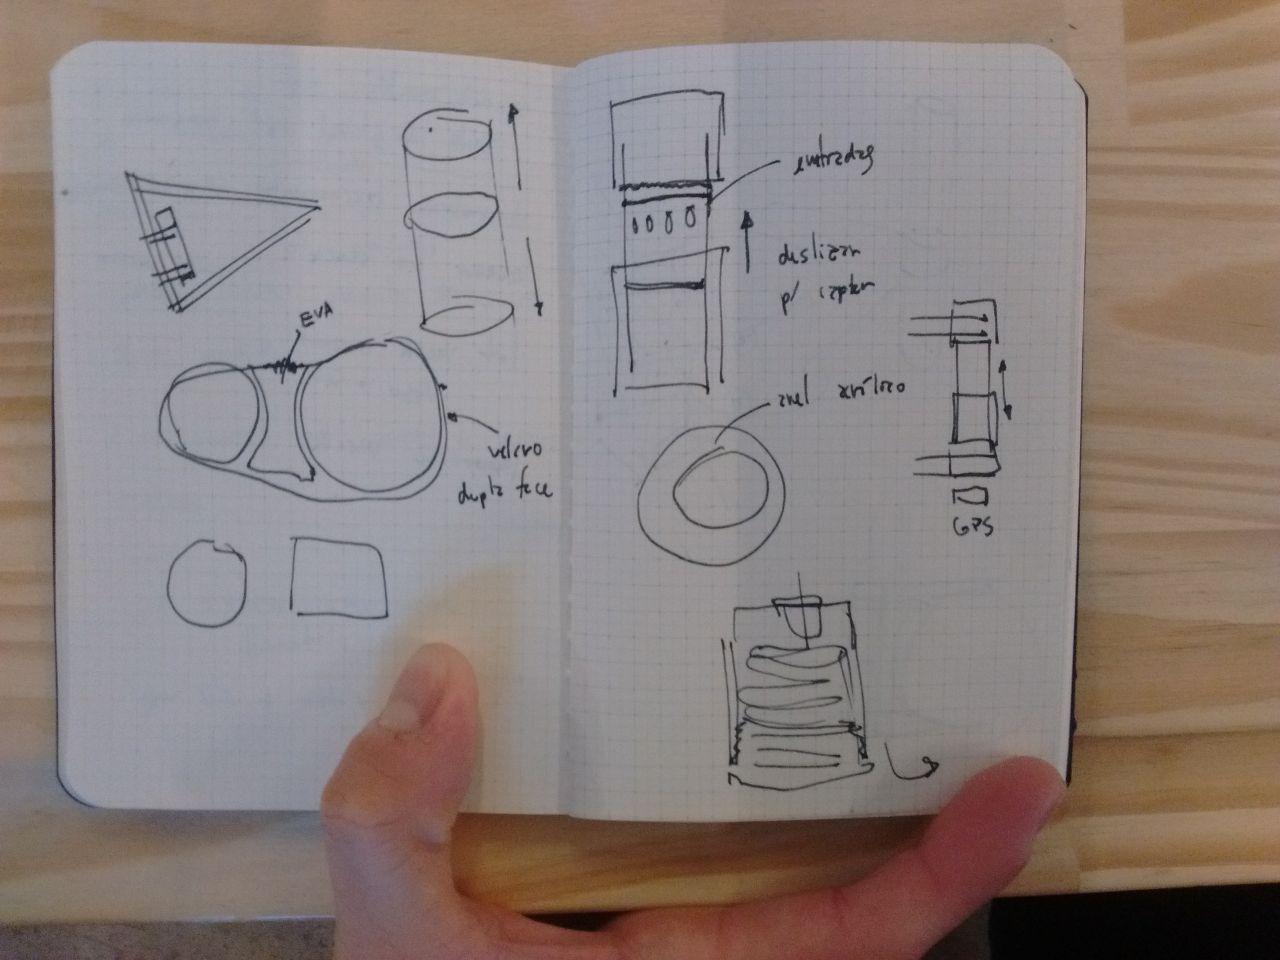 EVA
velcro
dupla face
entradas
deslizar
p/ captar
anel acrílico
GPS